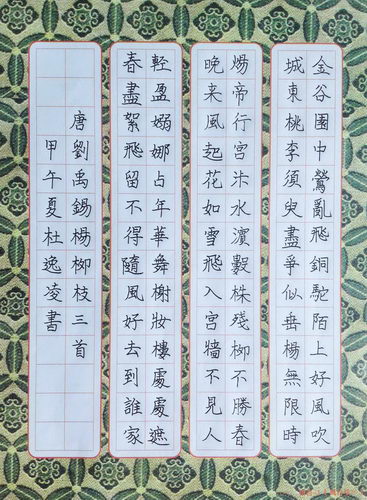 金谷園中鶯亂飛銅駝陌上好風吹
城東桃李須臾盡爭似垂楊無限時
煬帝行宮汴水濵數株殘柳不勝春
晚来風起花如雪飛入宮墻不見人
輕盈嫋娜占年華舞榭妝樓處處遮
春盡絮飛留不得隨風好去到誰家
唐劉禹錫楊柳枝三首
甲午夏杜逸凌書